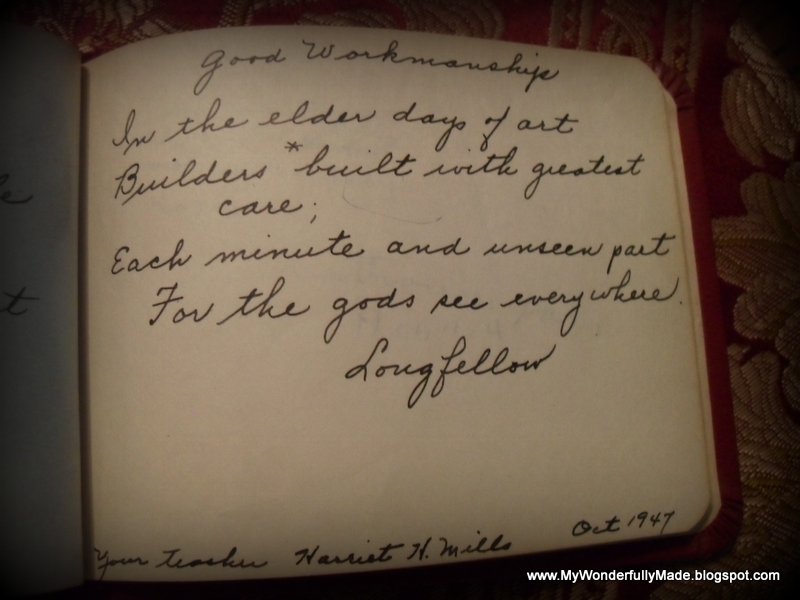 Good Workmanship
In the elder days of art
Builders *built with greatest
care;
Each minute and unseen part
For the gods see everywhere.
Longfellow
Your teacher Harriet H. Mills Oct 1947
www.MyWonderfullyMade.blogspot.com